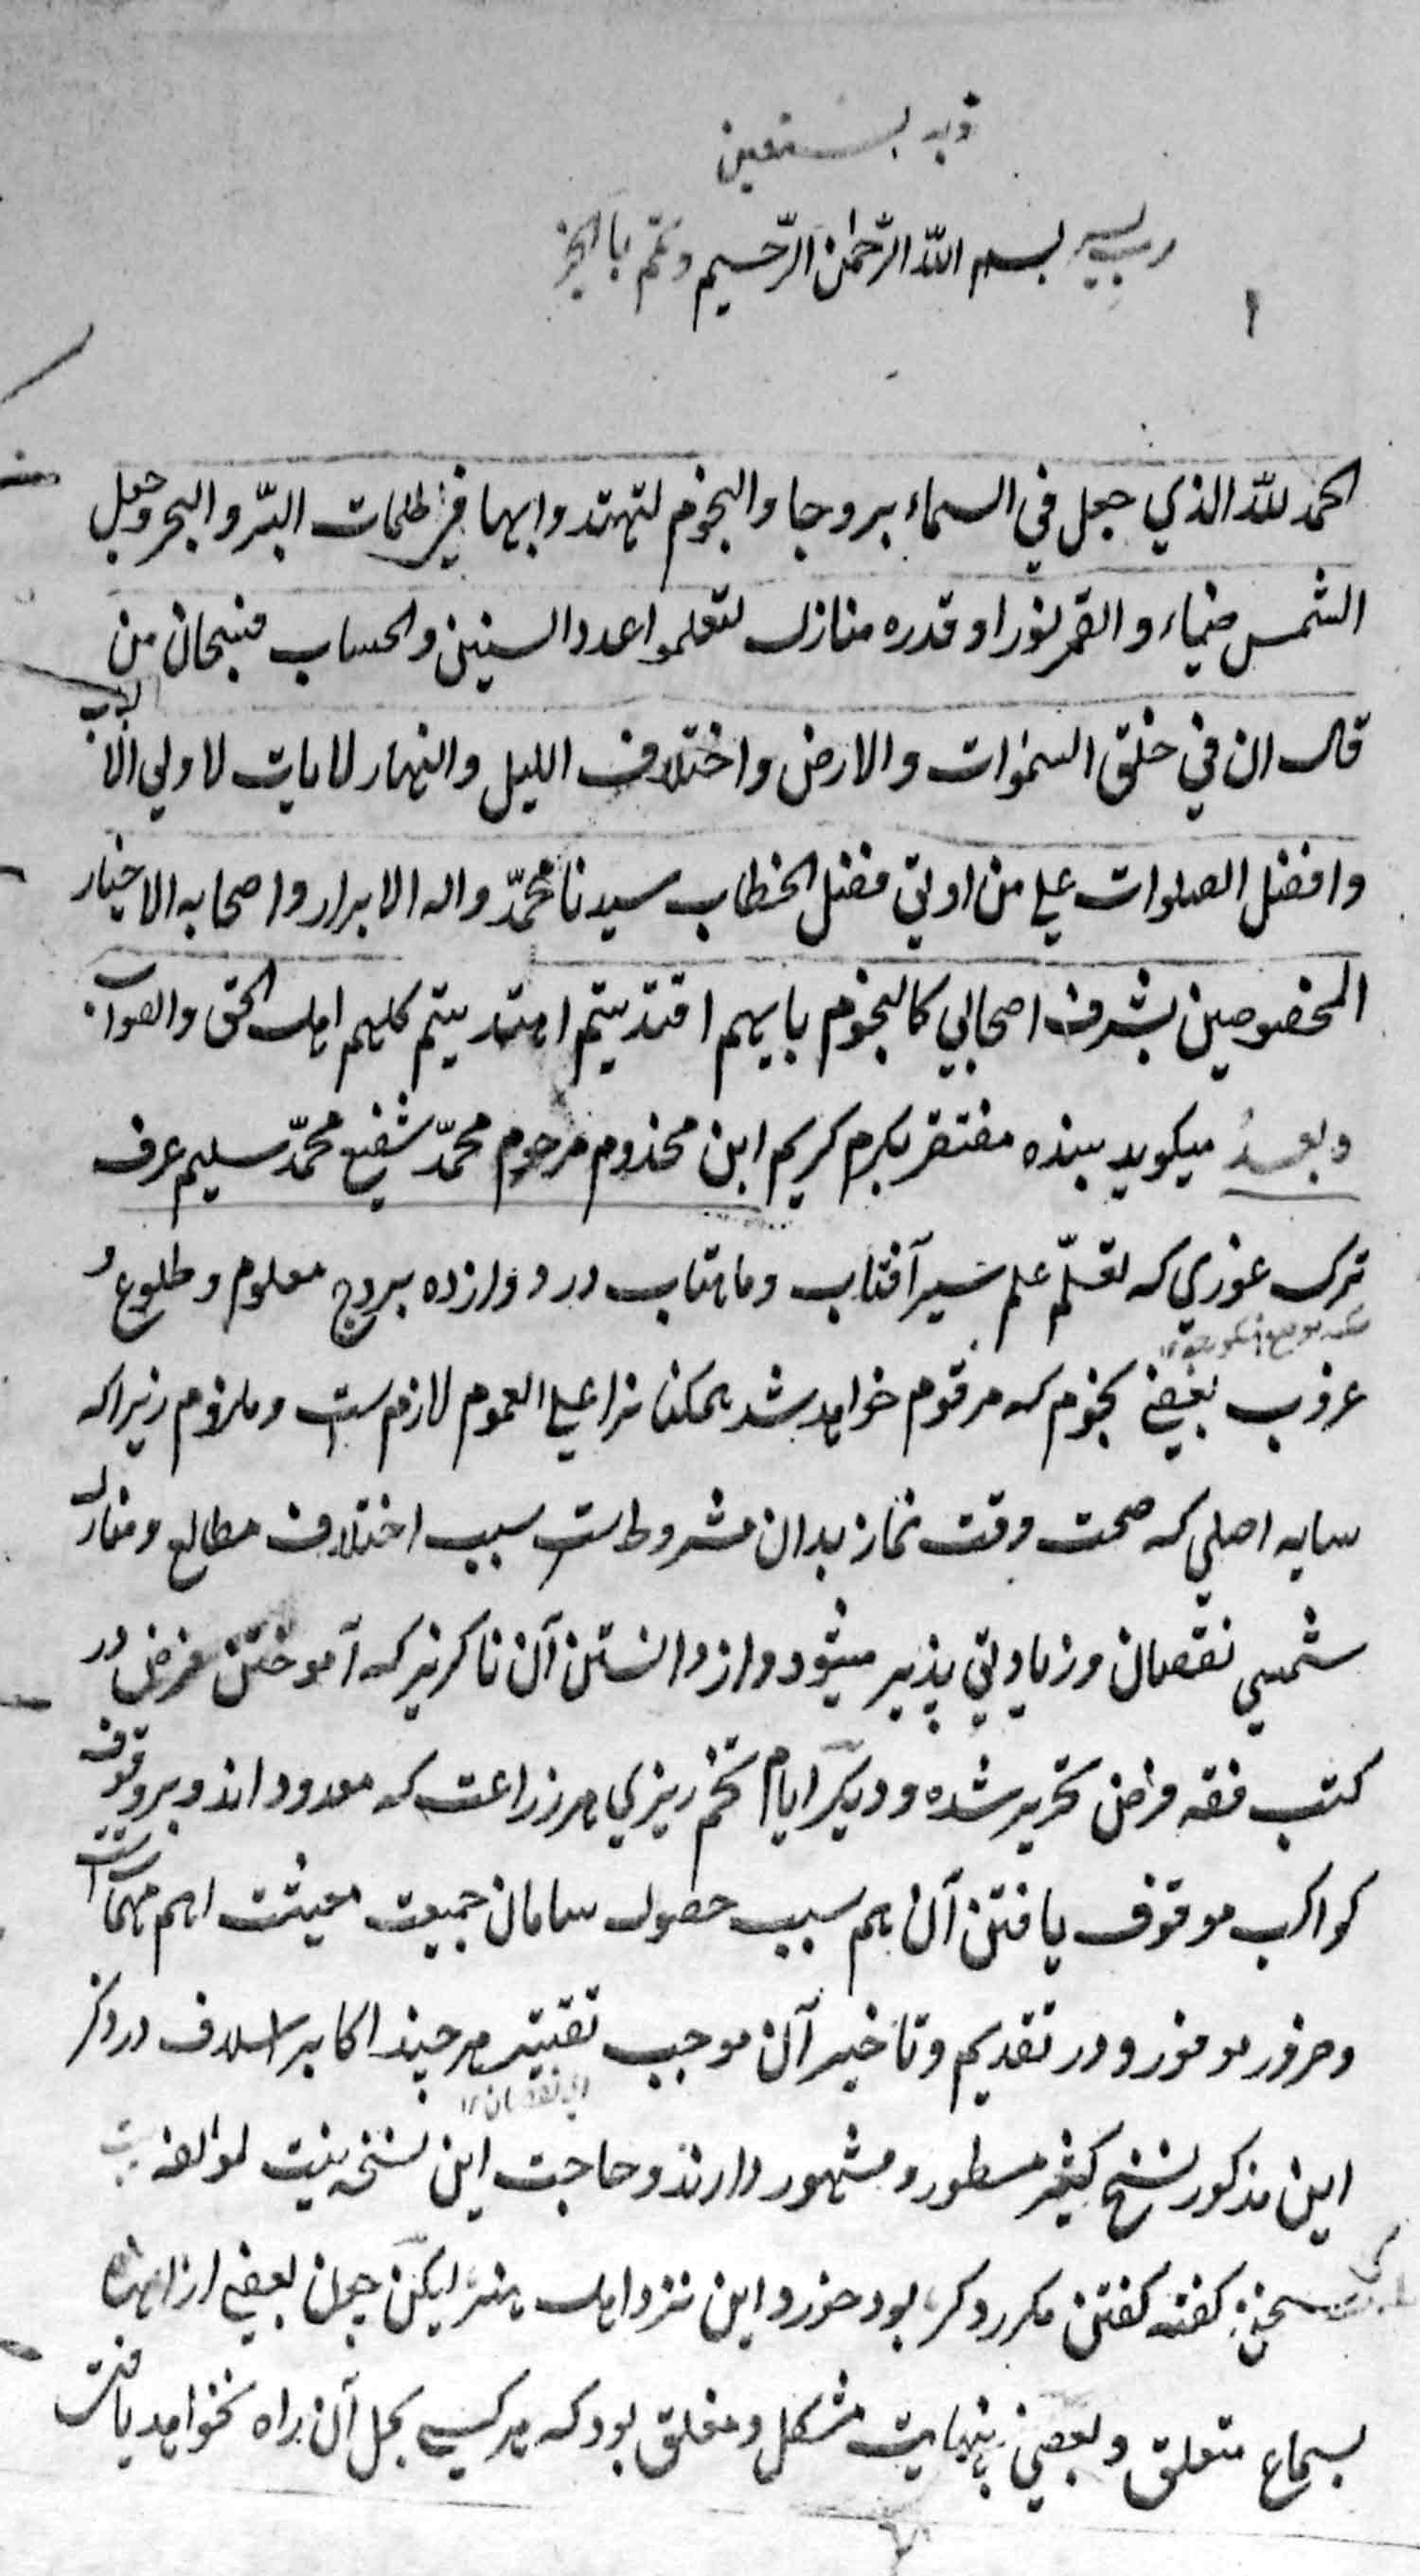 وبه نستعين
رب يسر بسم الله الرَّحمٰن الرَّحيم وتمّم بالخير
١
الحمد للّه الذي جعل في السماء بروجا والنجوم لتهتدوا بها في ظلمات البرّ والبحر وجعل
الشمس ضياء والقمر نورا وقدره منازل لتعلموا عدد السنين والحساب فسبحان من
قال ان في خلق السموات والارض واختلاف الليل والنهار لايات لاولي الالباب
وافضل الصلوات علي من اوتي فضل الخطاب سيدنا محمّد واله الابرار واصحابه الاخيار
المخصوصين بشرف اصحابي كالنجوم بايهم اقتديتم اهتديتم كلهم اهل الحق والصواب
وبعدُ ميكويد بنده مفتقر بكرم كريم ابن مخدوم مرحوم محمّد شفيع محمّد سليم عرف
ترك غوري كه تعلّم علم سير آفتاب وماهتاب در دوازده بروج معلوم وطلوع و
غروب بعضي نجوم كه مرقوم خواهد شد همكنانرا علي العموم لازمست وملزوم زيراكه
سايه اصلي كه صحت وقت نماز بدان مشروطست سبب اختلاف مطالع ومنازل
شمسي نقصان وزيادتي پذير ميشود واز دانستن آن ناكزير كه آموختن فرض در
كتب فقه فرض تحرير شده وديكر ايام تخم ريزي هر زراعت كه معدود اند وبر وقوف
كواكب موقوف يافتن آن هم سبب حصول سامان جمعيت معيشت اهم مهمات است
وضرور موفور ودر تقديم وتاخير آن موجب تقتير هرچند اكابر اسلاف در ذكر
اي نقصان ١٢
اين مذكور نسخ كثير مسطور ومشهور دارند وحاجت اين نسخه نيست لمؤلفه بيت
سخن كفته كفتن مكرر وكر بود خورد اين نزد اهل هنر ليكن چون بعضي از انها
بسماع متعلق وبعضي بنهايت مشكل ومغلق بود كه هر كسي بحل آن راه نخواهد يافت